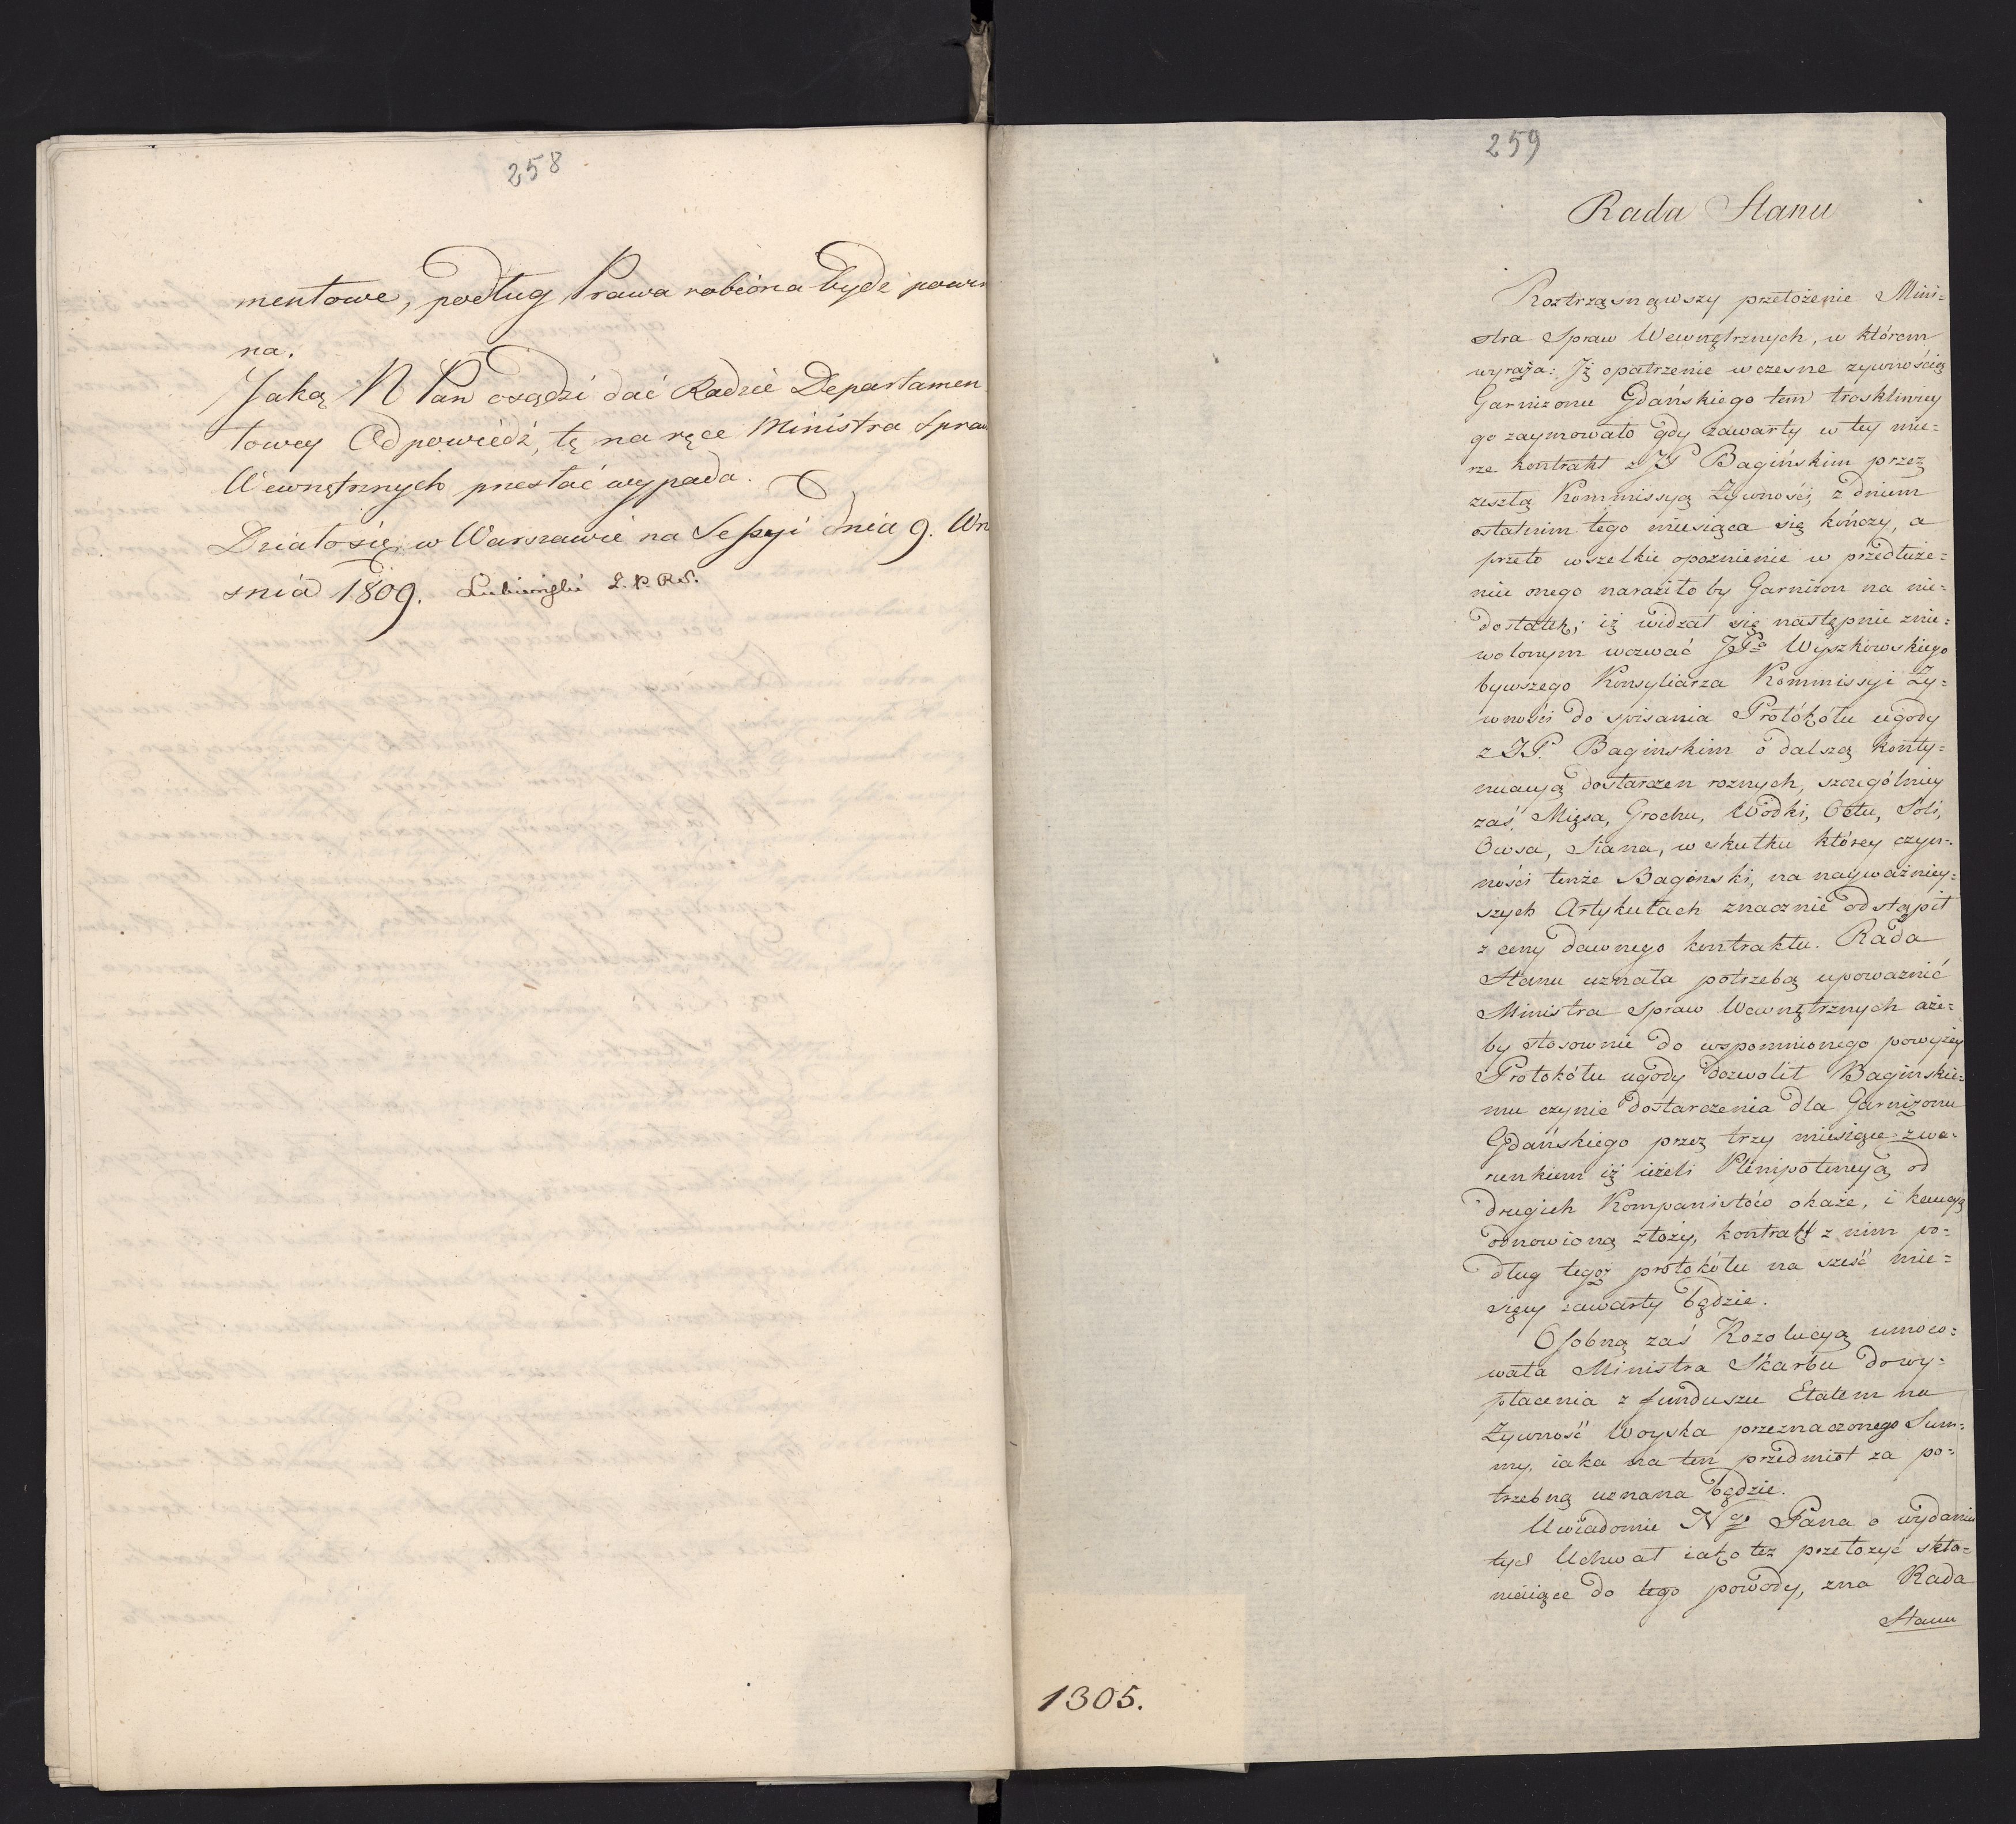 258
mentowe, podług Prawa robiona bydź powin
na.
Jaką N Pan osądzi dać Radzie Departamen
towey Odpowiedź, tę na ręce Ministra Spraw
Wewnętrznych przesłać wypada.
Działosię w Warszawie na Sessyi dnia 9. Wrz
snia 1809. Lubieński Z. P. RS.
259
Rada Stanu
Roztrząsnąwszy przełożenie Mini=
stra Spraw Wewnętrznych, w którem
wyraża: Jż opatrzenie wczesne zywnością
Garnizonu Gdańskiego tem troskliwiey
go zaymowało gdy zawarty w tey mie=
rze kontrakt z JP Bagińskim przez
zeszłą Kommissyą Żywności z dniem
ostatnim tego miesiąca się kończy, a
przeto wszelkie opoznienie w przedłuże=
niu onego naraziło by Garnizon na nie=
dostatek; iż widział się następnie znie=
wolonym wezwać JPa Wyszkowskiego
bywszego Konsyliarza Kommissyi Ży=
wności do spisania Protókółu ugody
z JP. Baginskim o dalszą konty=
nuacyą dostarczen roznych, szczególniey
zaś, Mięsa, Grochu, Wódki, Octu, Soli,
Owsa, Siana, w skutku którey czyn=
ności tenże Bagiński, na nayważniey=
szych Artykułach znacznie odstąpił
z ceny dawnego kontraktu. Rada
Stanu uznała potrzebą upoważnić
Ministra Spraw Wewnętrznych aże=
by stosownie do wspomnionego powyżey
Protokółu ugody dozwolił Baginskie=
mu czynić dostarczenia dla Garnizonu
Gdańskiego przez trzy miesiące z wa=
runkiem iż ieżeli Plenipotencyą od
drugich Kompanistów okaże, i kaucyą
odnowioną złoży, kontrakt z nim po=
dług tegoż protokółu na sześć mie=
sięcy zawarty będzie.
Osobną zaś Rezolucyą umoco=
wała Ministra Skarbu do wy=
płacenia z funduszu Etatem na
Żywność Woyska przeznaczonego Sum=
my, iaka na ten przedmiot za po=
trzebną uznana będzie.
Uwiadomić Ngo Pana o wydaniu
tych Uchwał iako też przełożyć skła=
niaiące do tego powody, zna Rada
Stanu
1305.